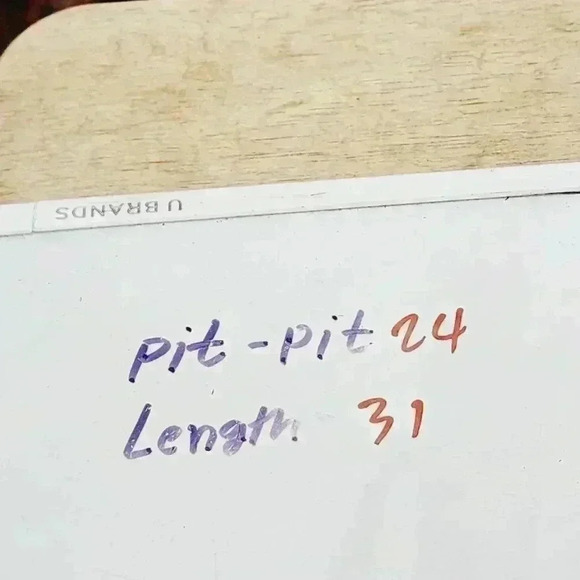 U BRANDS
pit-pit 24
Length 31